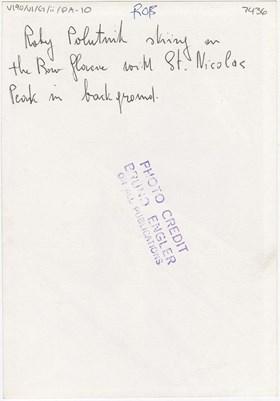 V190/VI/G/ii/DA-10
ROB
7436
Roby Polutnik skiing on
the Bow Glacier with St. Nicolas
Peak in background.
PHOTO CREDIT
BRUNO ENGLER
ON ALL PUBLICATIONS